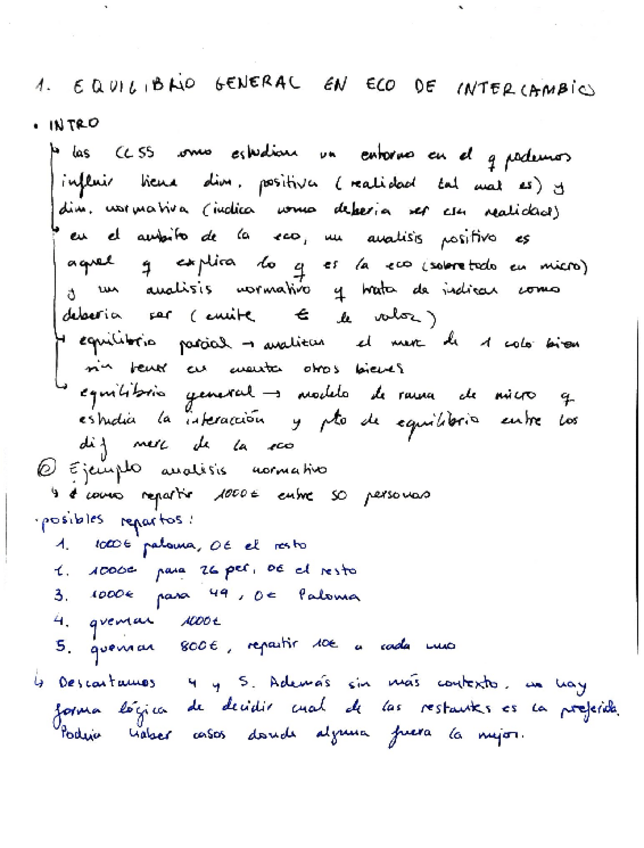 1. EQUILIBRIO GENERAL EN ECO DE INTERCAMBIO
• INTRO
las CCSS como estudian un entorno en el q podemos
influir tiene dim. positiva (realidad tal cual es) y
dim. normativa (indica como deberia ser esa realidad)
en el ambito de la eco, un analisis positivo es
aquel q explica lo q es la eco (sobretodo en micro)
y un analisis normativo q trata de indicar como
deberia ser (emite de valor)
equilibrio parcial → analizar el merc de 1 solo bien
sin tener en cuenta otros bienes
equilibrio general → modelo de rama de micro q
estudia la interacción y pto de equilibrio entre los
dif merc de la eco
Ejemplo analisis normativo
↳ como repartir 1000€ entre 50 personas
·posibles repartos:
1. 1000€ paloma, 0€ el resto
2. 1000€ para 26 per, 0€ el resto
3. 1000€ para 49, 0€ Paloma
4. quemar 1000€
5. quemar 800€, repartir 10€ a cada uno
↳ Descartamos 4 y 5. Además sin más contexto, no hay
forma lógica de decidir cual de las restantes es la preferida.
Podria haber casos donde alguna fuera la mejor.